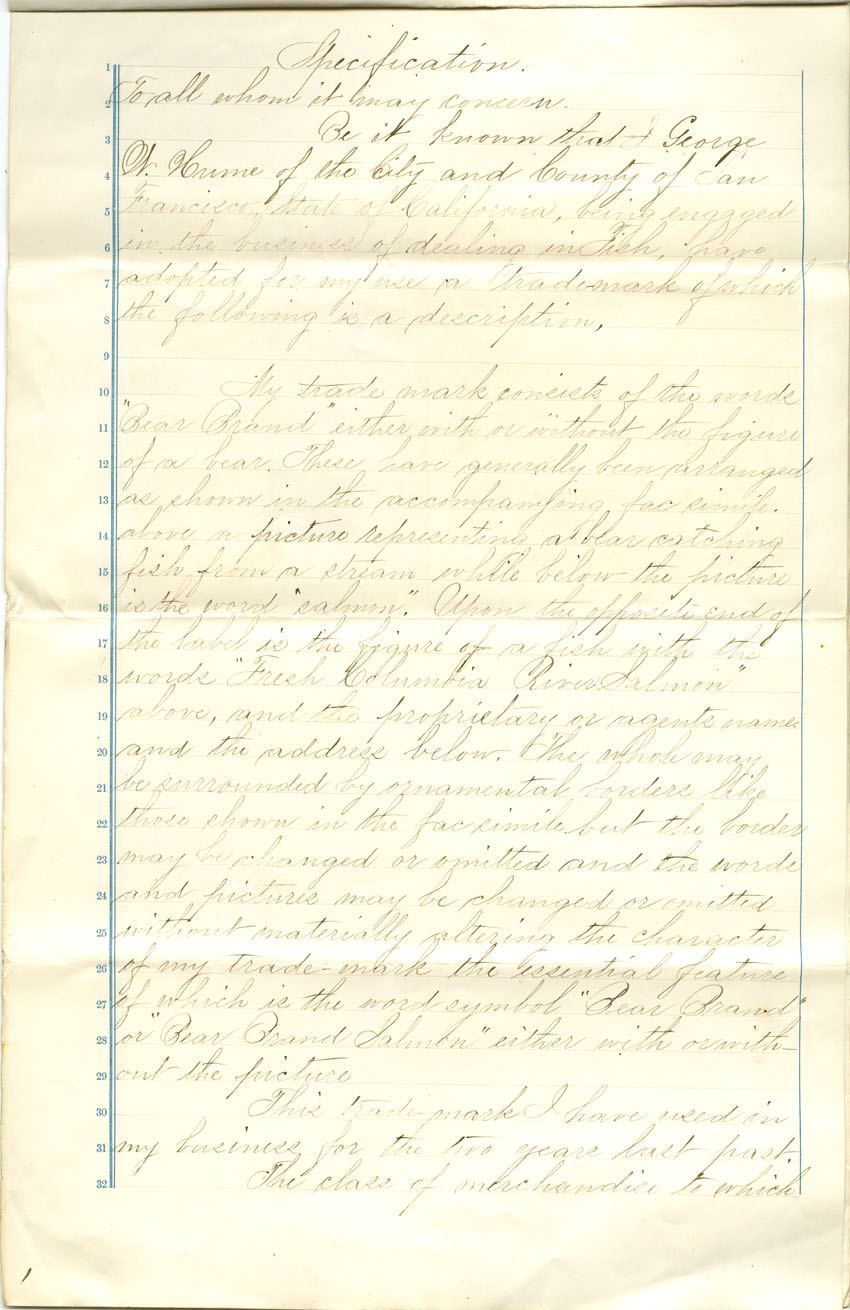 Specification.
1
To all whom it may concern.
2
Be it known that I George
3
W. Hume of the City and County of San
4
Francisco, State of California, being engaged
5
in the business of dealing in Fish, have
6
adopted for my use a trade-mark of which
7
the following is a description,
8
9
My trade mark consists of the words
10
"Bear Brand" either with or without the figure
11
of a bear. These have generally been arranged
12
as shown in the accompanying fac simile.
13
above a picture representing a bear catching
14
fish from a stream while below the picture
15
is the word "salmon". Upon the opposite end of
16
the label is the figure of a fish with the
17
words "Fresh Columbia River Salmon"
18
above, and the proprietary or agents names
19
and the address below. The whole may
20
be surrounded by ornamental borders like
21
those shown in the fac simile but the border
22
may be changed or omitted and the words
23
and pictures may be changed or omitted
24
without materially altering the character
25
of my trade-mark the essential feature
26
of which is the word symbol "Bear Brand"
27
or "Bear Brand Salmon" either with or with-
28
out the picture
29
This trade-mark I have used in
30
my business for the two years last past.
31
The class of merchandise to which
32